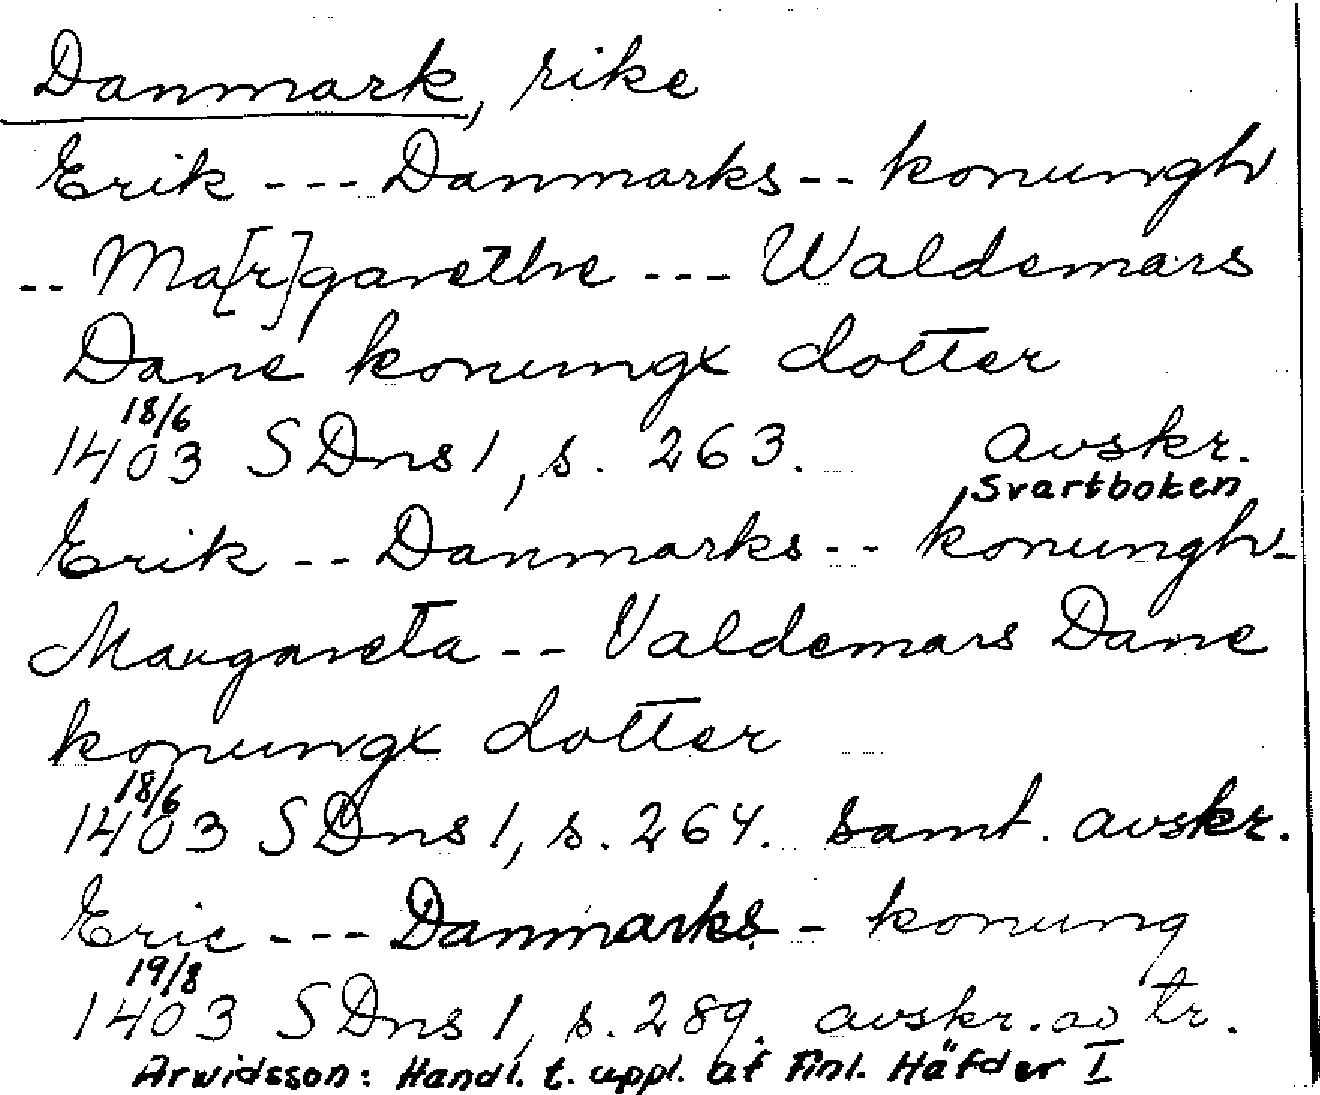 Danmark, rike
Erik --- Danmarks -- konungh
-- Ma[r]garethe --- Waldemars
Dane konungx dotter
18/6
1403 SDns 1, s. 263. avskr.
Svartboken
Erik -- Danmarks -- konungh -
Margareta -- Valdemars Dane
konungx dotter
18/6
1403 SDns 1, s. 264. samt. avskr.
Eric --- Danmarks - konung
19/8
1403 SDns 1, s. 289. avskr. av tr.
Arwidsson: Handl. t. uppl. af Finl. Häfder I